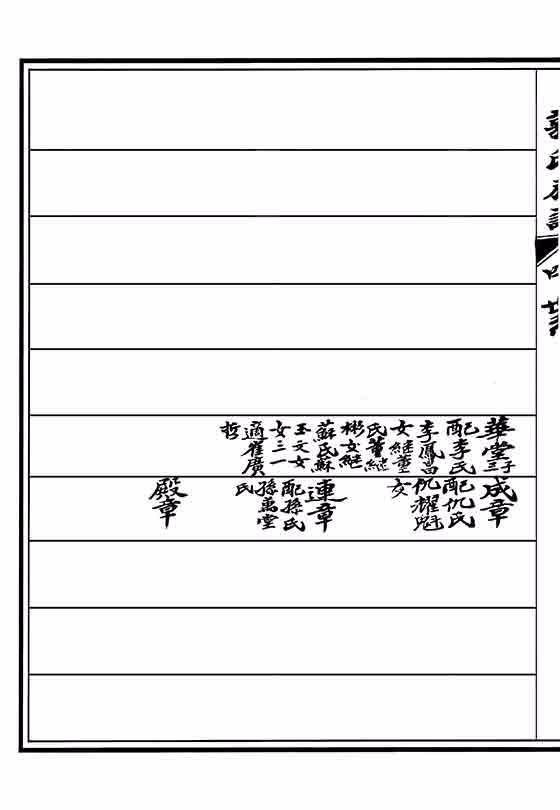 郭氏族譜
華堂子三
配李氏
李鳳昌
女繼董
氏董繼
彬女繼
蘇氏蘇
玉文女
女三一
適崔廣
哲
成章
配仉氏
仉耀魁
女
連章
配孫氏
孫萬堂
氏
殿章